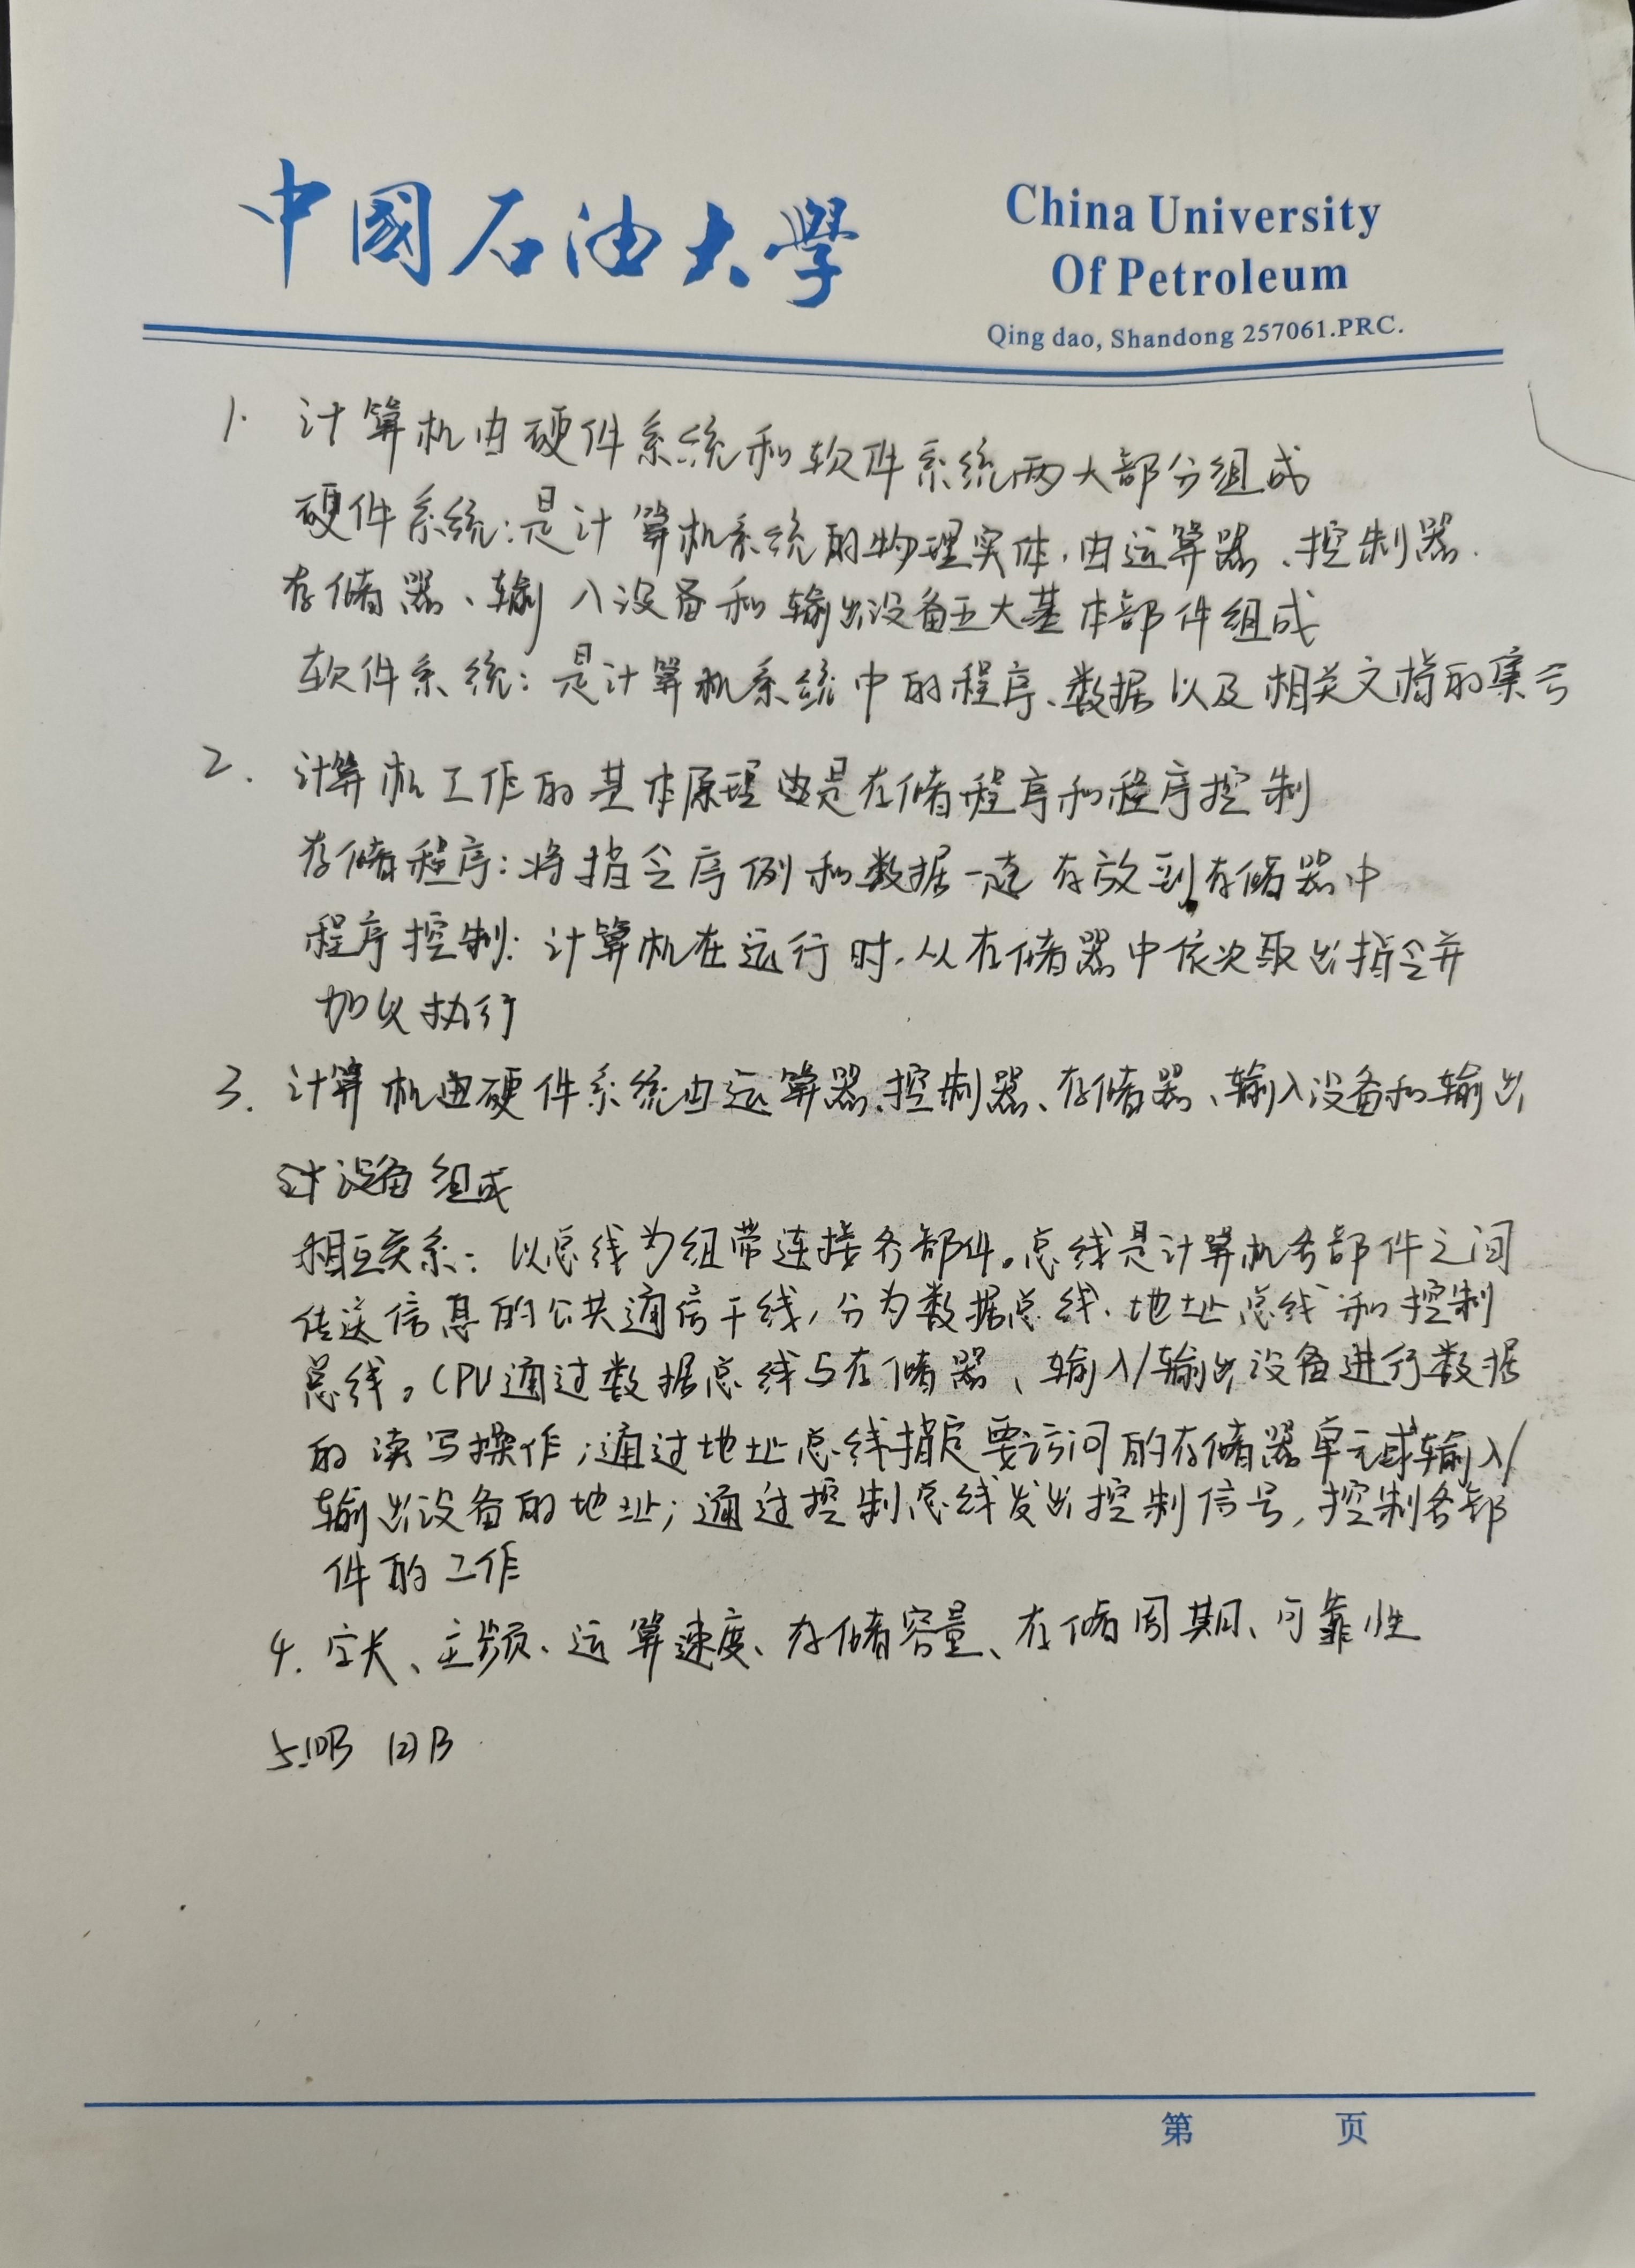 中國石油大學
China University
Of Petroleum
Qing dao, Shandong 257061.PRC.
1. 计算机由硬件系统和软件系统两大部分组成
硬件系统:是计算机系统的物理实体,由运算器、控制器、
存储器、输入设备和输出设备五大基本部件组成
软件系统:是计算机系统中的程序、数据以及相关文档的集合
2. 计算机工作的基本原理是存储程序和程序控制
存储程序:将指令序例和数据一起存放到存储器中
程序控制:计算机在运行时,从存储器中依次取出指令并
加以执行
3. 计算机硬件系统由运算器、控制器、存储器、输入设备和输出
设备组成
相互关系:以总线为纽带连接各部件。总线是计算机各部件之间
传送信息的公共通信干线,分为数据总线、地址总线和控制
总线。CPU通过数据总线与存储器、输入/输出设备进行数据
的读写操作;通过地址总线指定要访问的存储器单元或输入/
输出设备的地址;通过控制总线发出控制信号,控制各部
件的工作
4. 字长、主频、运算速度、存储容量、存储周期、可靠性
5.(1)B (2)B
第 页